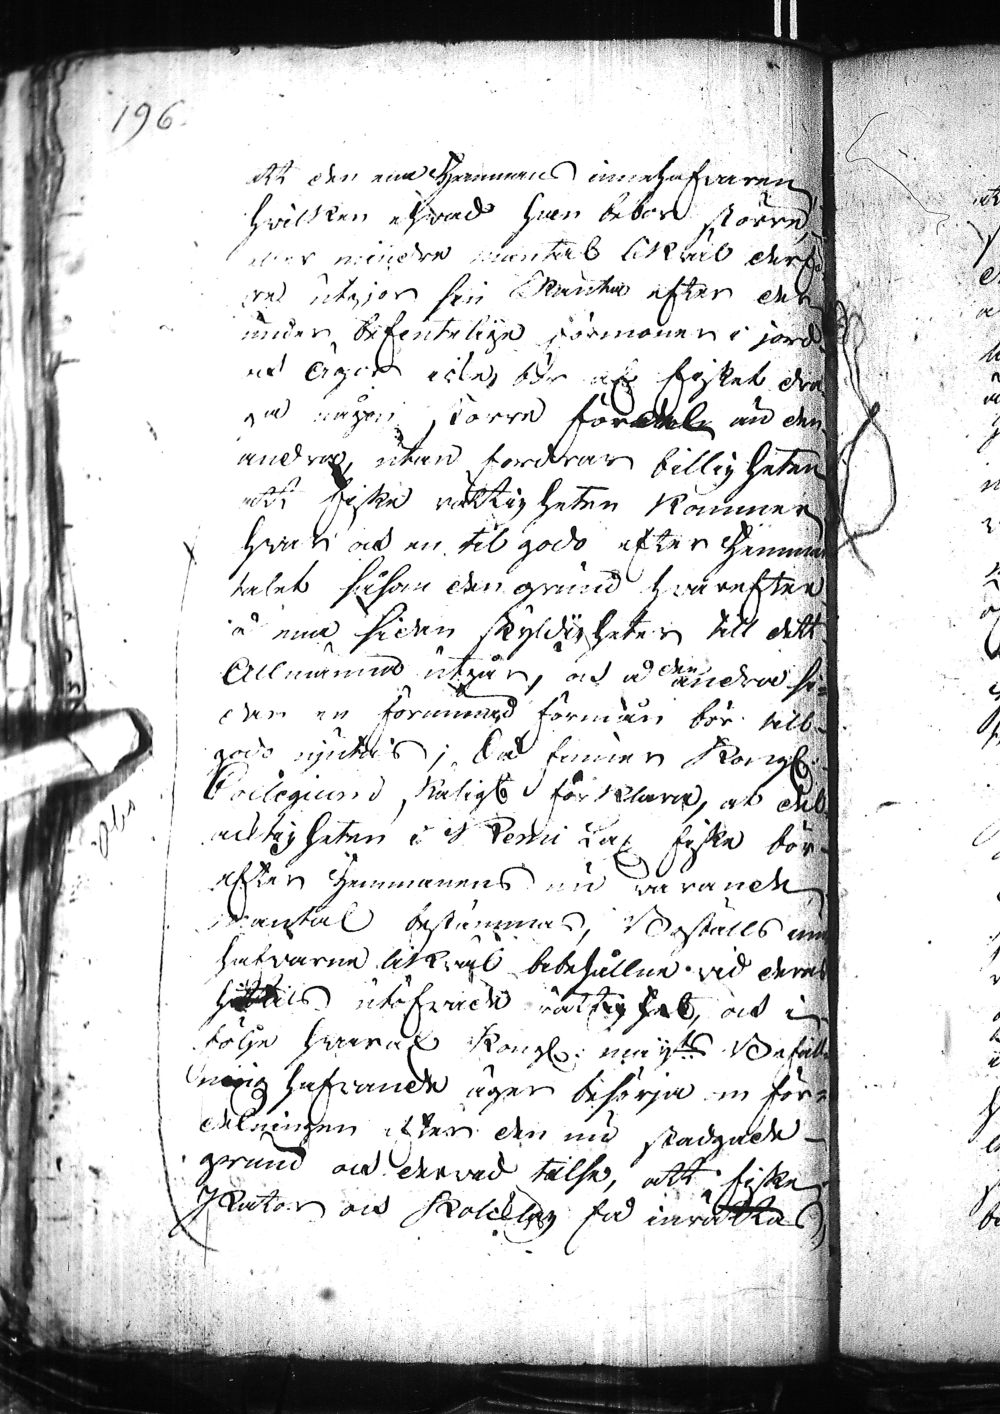 196.
att den ena Hemmans innehafvaren
hvilken ehvad han bebor större,
eller mindre mantal likväl derfö-
re utgjör sin Skatta efter der
under befinteliga förmoner i jord
och ägor icke bör af fisket dra-
ga någon större fördel än den
andra, utan fordrar billigheten
att fiske rättigheten kommer
hvar och en til godo efter Hemman-
talet såsom den grund hvarefter
å ena sidan skyldigheter till dett
Allmänna utgår, och å den andra si-
dan en förunnad förmån bör till-
godo njutas; Så finner Kongl.
Collegium skäligt förklara, at del-
acktigheten i Kemi Lax fiske bör
efter Hemmanens nu varande
mantal bestämmas, Boställs inne-
hafvarne likväl bibehållne vid deras
hittils utöfvade rättighet, och i
följe hvaraf Kongl. May:ts Befall-
ning hafvande äger besörja om för-
delningen efter den nu stadgade
grund och dervid tilse, att fiske
Skator och Skolelag så inrättas
Obs